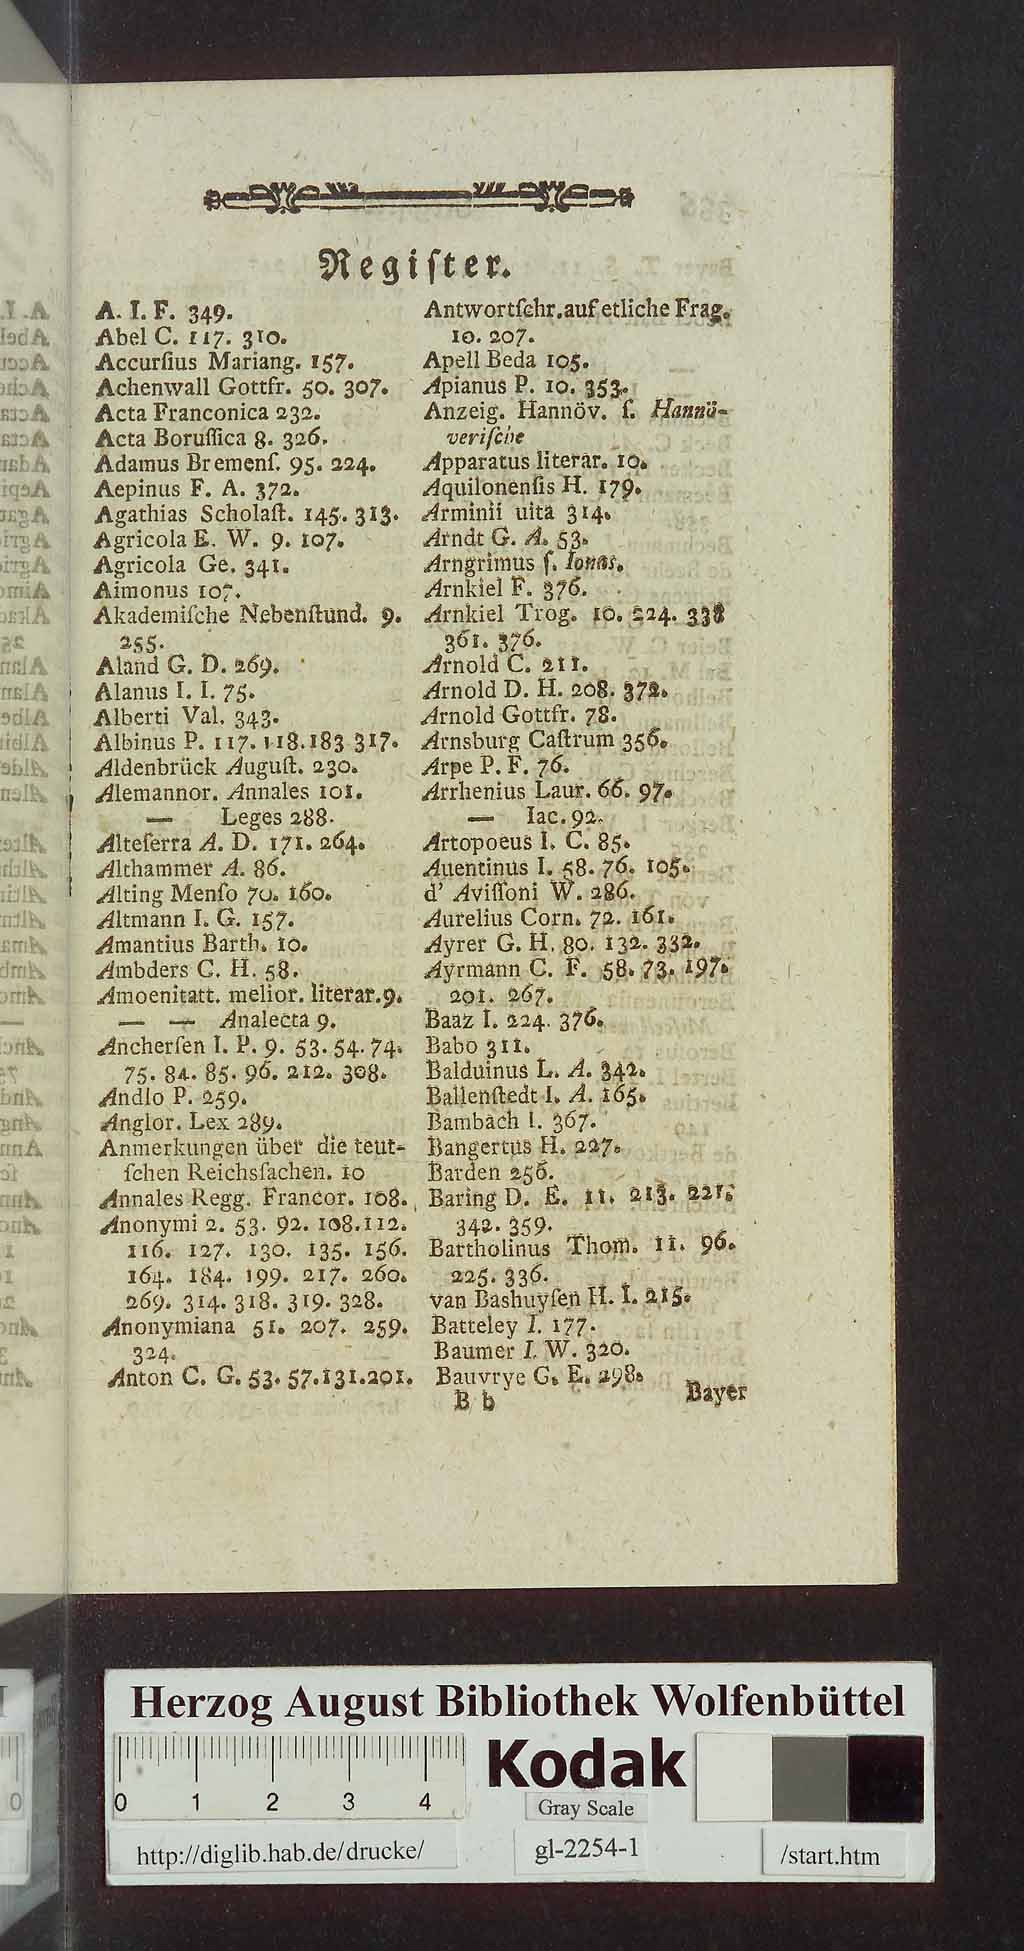 Regiſter.
A. I. F. 349.
Abel C. 117. 310.
Accurſius Mariang. 157.
Achenwall Gottfr. 50. 307.
Acta Franconica 232.
Acta Boruſſica 8. 326.
Adamus Bremenſ. 95. 224.
Aepinus F. A. 372.
Agathias Scholaſt. 145. 313.
Agricola E. W. 9. 107.
Agricola Ge. 341.
Aimonus 107.
Akademiſche Nebenſtund. 9.
255.
Aland G. D. 269.
Alanus I. I. 75.
Alberti Val. 343.
Albinus P. 117. 118. 183 317.
Aldenbrück Auguſt. 230.
Alemannor. Annales 101.
— Leges 288.
Alteſerra A. D. 171. 264.
Althammer A. 86.
Alting Menſo 70. 160.
Altmann I. G. 157.
Amantius Barth. 10.
Ambders C. H. 58.
Amoenitatt. melior. literar. 9.
— — Analecta 9.
Ancherſen I. P. 9. 53. 54. 74.
75. 84. 85. 96. 212. 308.
Andlo P. 259.
Anglor. Lex 289.
Anmerkungen über die teut-
ſchen Reichsſachen. 10
Annales Regg. Francor. 108.
Anonymi 2. 53. 92. 108. 112.
116. 127. 130. 135. 156.
164. 184. 199. 217. 260.
269. 314. 318. 319. 328.
Anonymiana 51. 207. 259.
324.
Anton C. G. 53. 57. 131. 201.
Antwortſchr. auf etliche Frag.
10. 207.
Apell Beda 105.
Apianus P. 10. 353.
Anzeig. Hannöv. ſ. Hannö-
veriſche
Apparatus literar. 10.
Aquilonenſis H. 179.
Arminii uita 314.
Arndt G. A. 53.
Arngrimus ſ. Ionas.
Arnkiel F. 376.
Arnkiel Trog. 10. 224. 338
361. 376.
Arnold C. 211.
Arnold D. H. 208. 372.
Arnold Gottfr. 78.
Arnsburg Caſtrum 356.
Arpe P. F. 76.
Arrhenius Laur. 66. 97.
— Iac. 92.
Artopoeus I. C. 85.
Auentinus I. 58. 76. 105.
d' Aviſſoni W. 286.
Aurelius Corn. 72. 161.
Ayrer G. H. 80. 132. 332.
Ayrmann C. F. 58. 73. 197.
201. 267.
Baaz I. 224. 376.
Babo 311.
Balduinus L. A. 342.
Ballenſtedt I. A. 165.
Bambach I. 367.
Bangertus H. 227.
Barden 256.
Baring D. E. 11. 213. 221.
342. 359.
Bartholinus Thom. 11. 96.
225. 336.
van Bashuyſen H. I. 215.
Batteley I. 177.
Baumer I. W. 320.
Bauvrye G. E. 298.
B b
Bayer
Herzog August Bibliothek Wolfenbüttel
0 1 2 3 4
Kodak
Gray Scale
http://diglib.hab.de/drucke/
gl-2254-1
/start.htm